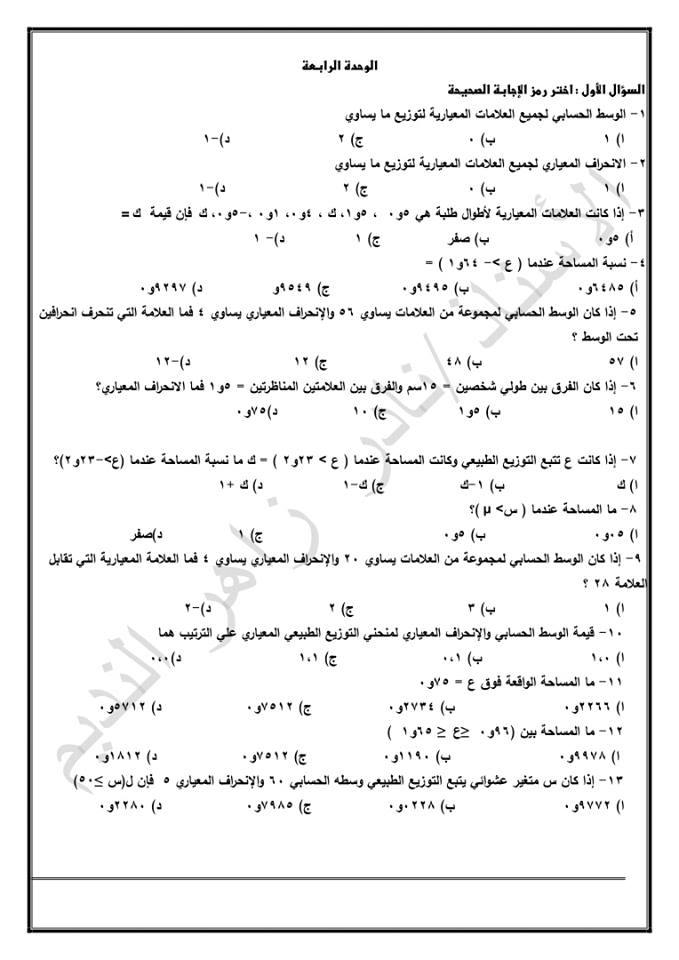 الوحدة الرابعة
السؤال الأول : اختر رمز الإجابة الصحيحة
١- الوسط الحسابي لجميع العلامات المعيارية لتوزيع ما يساوي
ا) ١ ب) ٠ ج) ٢ د)-١
٢- الانحراف المعياري لجميع العلامات المعيارية لتوزيع ما يساوي
ا) ١ ب) ٠ ج) ٢ د)-١
٣- إذا كانت العلامات المعيارية لأطوال طلبة هي ٥و٠ ، ٥و١، ك ، ٤و٠، ١و٠ ،-٥و٠، ك فإن قيمة ك =
أ) ٥و٠ ب) صفر ج) ١ د)- ١
٤- نسبة المساحة عندما ( ع >- ٦٤و١ ) =
أ) ٦٤٨٥و٠ ب) ٩٤٩٥و٠ ج) ٩٥٤٩و د) ٩٢٩٧و٠
٥- إذا كان الوسط الحسابي لمجموعة من العلامات يساوي ٥٦ والإنحراف المعياري يساوي ٤ فما العلامة التي تنحرف انحرافين
تحت الوسط ؟
ا) ٥٧ ب) ٤٨ ج) ١٢ د)-١٢
٦- إذا كان الفرق بين طولي شخصين = ١٥سم والفرق بين العلامتين المناظرتين = ٥و١ فما الانحراف المعياري؟
ا) ١٥ ب) ٥و١ ج) ١٠ د)٧٥و٠
٧- إذا كانت ع تتبع التوزيع الطبيعي وكانت المساحة عندما ( ع > ٢٣و٢ ) = ك ما نسبة المساحة عندما (ع>-٢٣و٢)؟
ا) ك ب) ١-ك ج) ك-١ د) ك +١
٨- ما المساحة عندما ( س> µ )؟
ا) ٠٥و٠ ب) ٥و٠ ج) ١ د)صفر
٩- إذا كان الوسط الحسابي لمجموعة من العلامات يساوي ٢٠ والإنحراف المعياري يساوي ٤ فما العلامة المعيارية التي تقابل
العلامة ٢٨ ؟
ا) ١ ب) ٣ ج) ٢ د)-٢
١٠- قيمة الوسط الحسابي والإنحراف المعياري لمنحني التوزيع الطبيعي المعياري علي الترتيب هما
ا) ١،٠ ب) ٠،١ ج) ١،١ د)٠،٠
١١- ما المساحة الواقعة فوق ع = ٧٥و٠
ا) ٢٢٦٦و٠ ب) ٢٧٣٤و٠ ج) ٧٥١٢و٠ د) ٥٧١٢و٠
١٢- ما المساحة بين (٩٦و٠ ≤ع ≤ ٦٥و١ )
ا) ٩٩٧٨و٠ ب) ١١٩٠و٠ ج) ٧٥١٢و٠ د) ١٨١٢و٠
١٣- إذا كان س متغير عشوائي يتبع التوزيع الطبيعي وسطه الحسابي ٦٠ والإنحراف المعياري ٥ فإن ل(س ≥٥٠)
ا) ٩٧٧٢و٠ ب) ٠٢٢٨و٠ ج) ٧٩٨٥و٠ د) ٢٢٨٠و٠
الأستاذ / نادر زاهر النديم